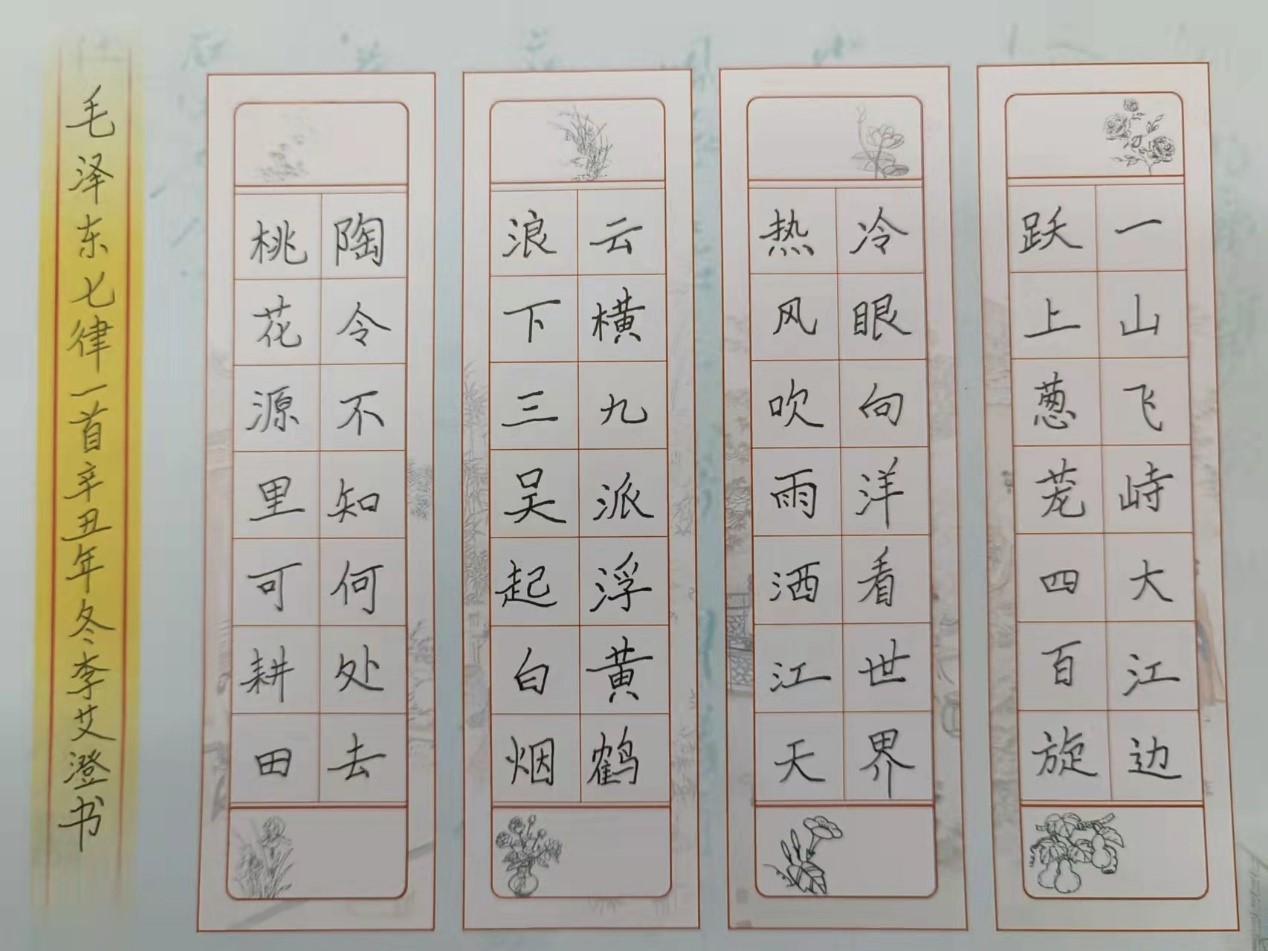 一山飞峙大江边
跃上葱茏四百旋
冷眼向洋看世界
热风吹雨洒江天
云横九派浮黄鹤
浪下三吴起白烟
陶令不知何处去
桃花源里可耕田
毛泽东七律一首辛丑年冬李艾澄书